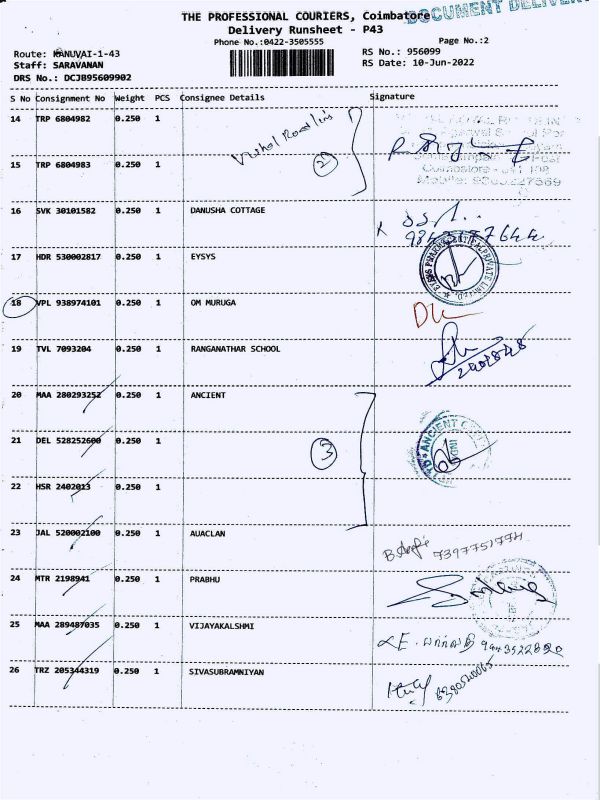 THE PROFESSIONAL COURIERS, Coimbatore
DOCUMENT DELIVER
Delivery Runsheet - P43
Phone No.:0422-3505555
Page No.:2
Route: KANUVAI-1-43
RS No.: 956099
Staff: SARAVANAN
RS Date: 10-Jun-2022
DRS No.: DCJB95609902
S No Consignment No Weight PCS Consignee Details Signature
14 TRP 6804982 0.250 1
2
15 TRP 6804983 0.250 1
Coimbatore
16 SVK 30101582 0.250 1 DANUSHA COTTAGE
17 HDR 530002817 0.250 1 EYSYS
EYSYS PHARMACEUTICAL PRIVATE LIMITED
18 VPL 938974101 0.250 1 OM MURUGA
19 TVL 7093204 0.250 1 RANGANATHAR SCHOOL
20 MAA 280293252 0.250 1 ANCIENT
ANCIENT
21 DEL 528252600 0.250 1
3
22 HSR 2402013 0.250 1
23 JAL 520002100 0.250 1 AUACLAN
7397751774
24 MTR 2198941 0.250 1 PRABHU
25 MAA 289487035 0.250 1 VIJAYAKALSHMI
9943522820
26 TRZ 205344319 0.250 1 SIVASUBRAMNIYAN